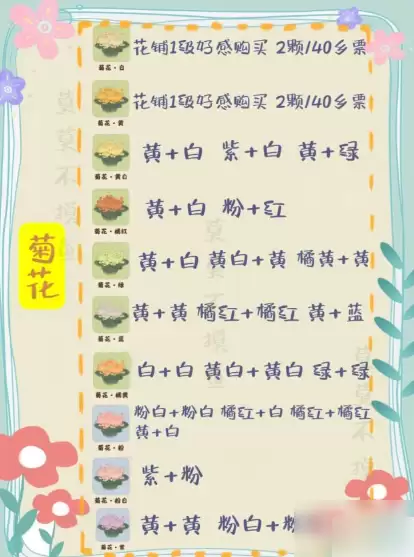 花铺1级好感购买 2颗/40乡票
菊花·白
花铺1级好感购买 2颗/40乡票
菊花·黄
黄+白 紫+白 黄+绿
菊花·黄白
黄+白 粉+红
菊花·橘红
菊花
黄+白 黄白+黄 橘黄+黄
菊花·绿
黄+黄 橘红+橘红 黄+蓝
菊花·蓝
白+白 黄白+黄白 绿+绿
菊花·橘黄
粉白+粉白 橘红+白 橘红+橘红
黄+白
菊花·粉
紫+粉
菊花·粉白
黄+黄 粉白+粉
菊花·紫
莫莫不摸鱼